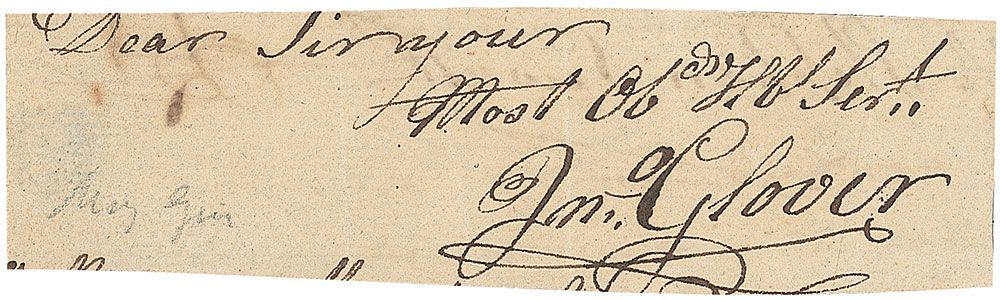 Dear Sir your
Most Ob ds Hb Sert.
Jno. Glover